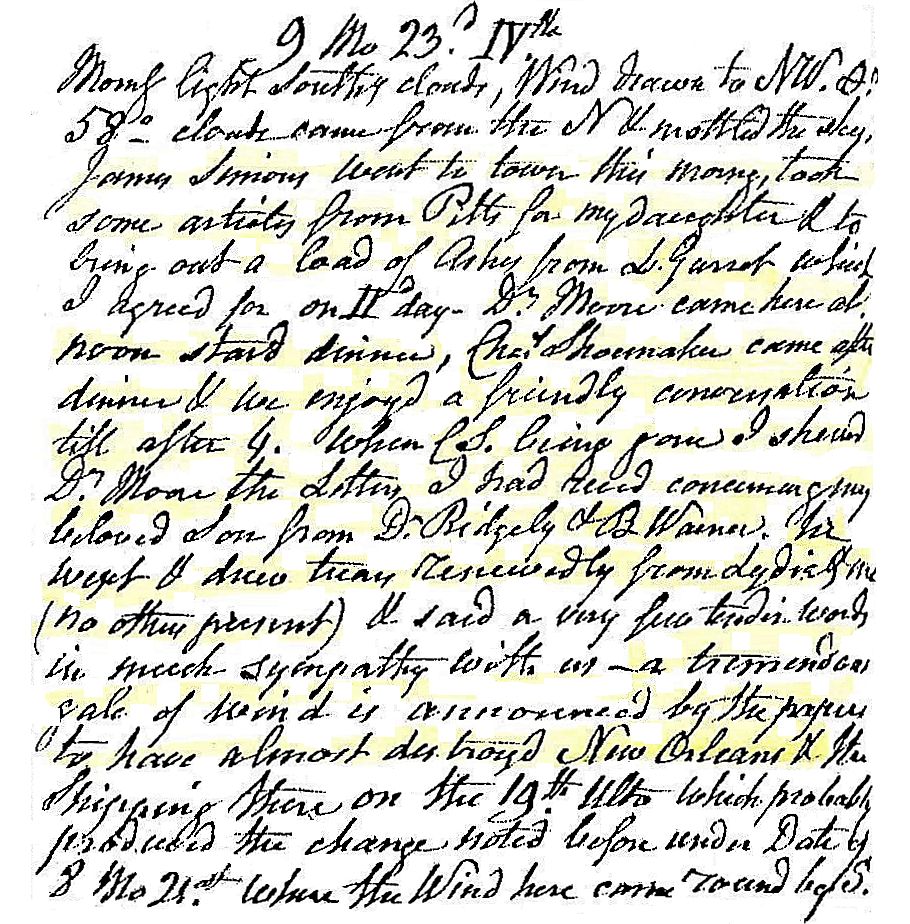 9 Mo 23.d IVth
Morng light Southy clouds, Wind drawn to NW. &
58° clouds came from the N & mottled the sky,
James Simons went to town this morng, took
some articles from Pitts for my daughter & to
bring out a load of Ashes from L. Garret which
I agreed for on IId day - Dr Moore came here at
noon staid dinner, Chas Shoemaker came after
dinner & we enjoyd a friendly conversation
till after 4. When CS. being gone I shewd
Dr Moore the Letters I had recd concerning my
beloved Son from Dr Ridgely & B Warner. he
wept & drew tears renewedly from Lydia & me
(no others present) & said a very few tender words
in much sympathy with us - a tremendous
gale of wind is announced by the papers
to have almost destroyd New Orleans & the
Shipping there on the 19th Ulto which probably
produced the change noted before under Date of
8 Mo 21st where the Wind here came round by S.